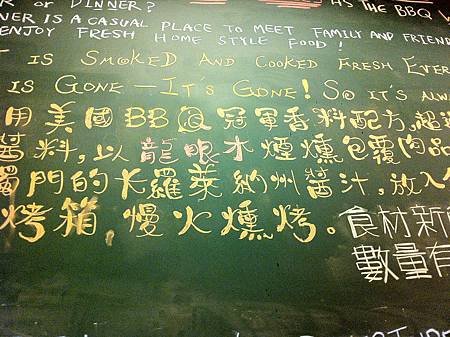 OR DINNER?
AS THE BBQ
NER IS A CASUAL PLACE TO MEET FAMILY AND FRIEND
ENJOY FRESH HOME STYLE FOOD!
IS SMOKED AND COOKED FRESH EVER
IS GONE - IT'S GONE! SO IT'S ALWA
用美國BBQ冠軍香料配方,超
醬料,以龍眼木煙燻包覆肉品
獨門的卡羅萊納州醬汁,放入
烤箱,慢火燻烤。食材新
數量有